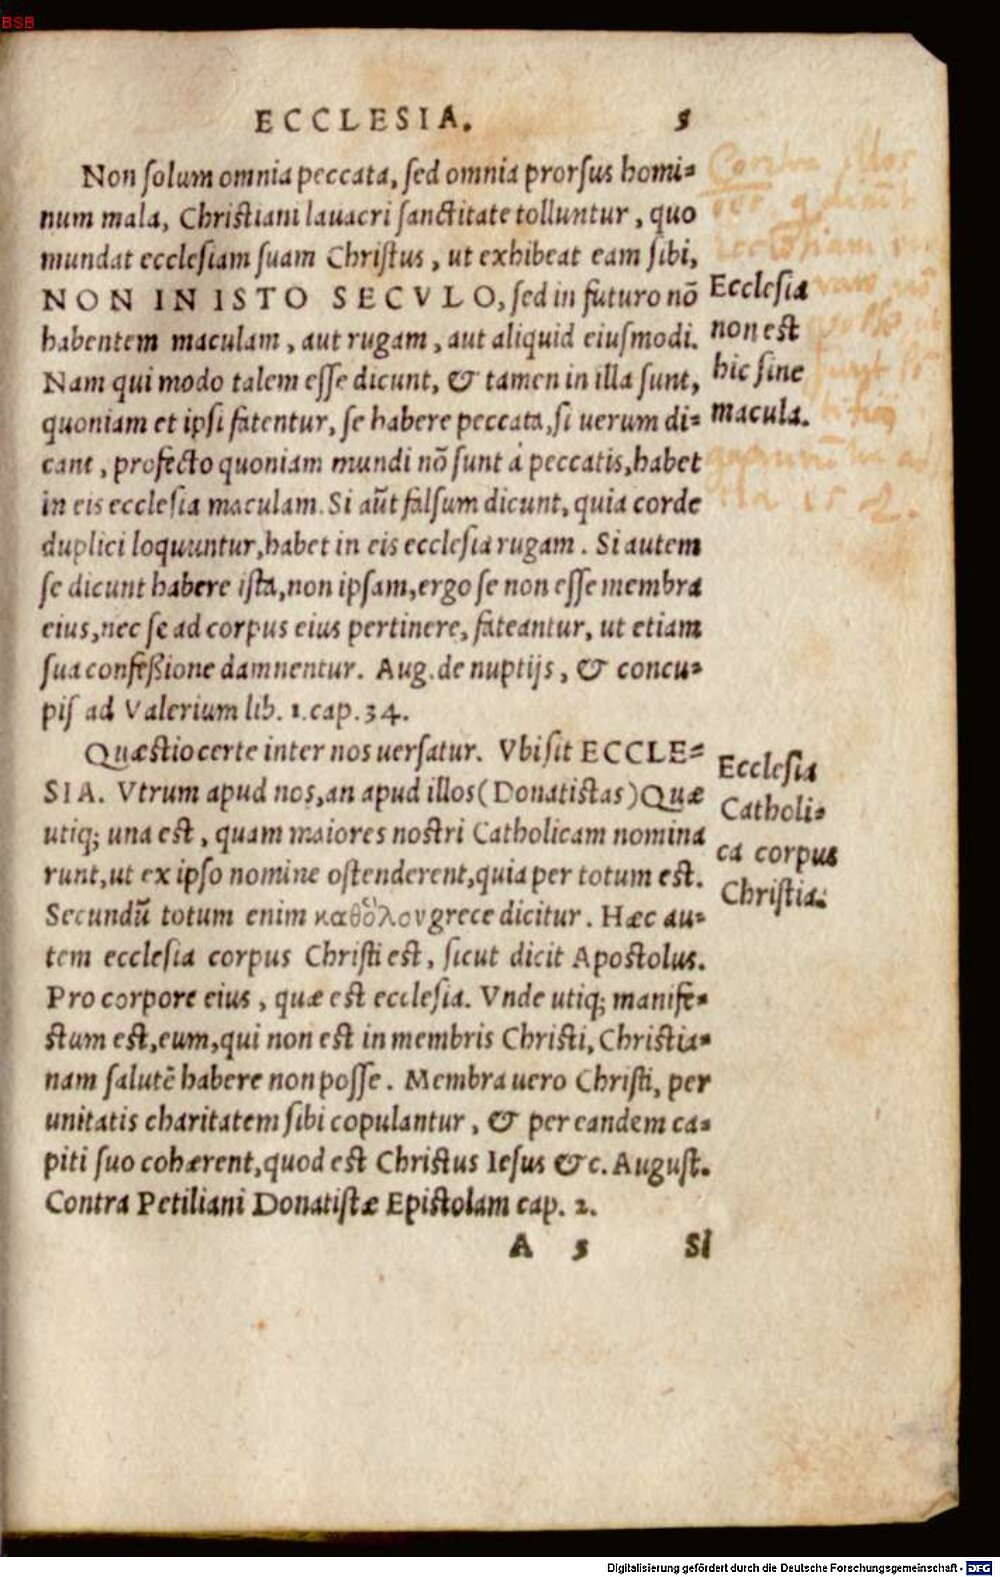 BSB
ECCLESIA. 5
Non ſolum omnia peccata, ſed omnia prorſus homi=
num mala, Chriſtiani lauacri ſanctitate tolluntur, quo
mundat eccleſiam ſuam Chriſtus, ut exhibeat eam ſibi,
NON IN ISTO SECVLO, ſed in futuro nõ
habentem maculam, aut rugam, aut aliquid eiuſmodi.
Nam qui modo talem eſſe dicunt, & tamen in illa ſunt,
quoniam et ipſi fatentur, ſe habere peccata, ſi uerum di=
cant, profecto quoniam mundi nõ ſunt à peccatis, habet
in eis eccleſia maculam. Si aũt falſum dicunt, quia corde
duplici loquuntur, habet in eis eccleſia rugam. Si autem
ſe dicunt habere iſta, non ipſam, ergo ſe non eſſe membra
eius, nec ſe ad corpus eius pertinere, fateantur, ut etiam
ſua confeßione damnentur. Aug. de nuptijs, & concu=
piſ ad Valerium lib. 1. cap. 34.
Eccleſia
non est
hic ſine
macula.
Quæstio certe inter nos uerſatur. Vbi ſit ECCLE=
SIA. Vtrum apud nos, an apud illos (Donatiſtas) Quæ
utiq; una est, quam maiores nostri Catholicam nomina
runt, ut ex ipſo nomine oſtenderent, quia per totum est.
Secundũ totum enim καθὅλου grece dicitur. Hæc au=
tem eccleſia corpus Chriſti est, ſicut dicit Apoſtolus.
Pro corpore eius, quæ est eccleſia. Vnde utiq; manife=
ſtum est, eum, qui non est in membris Chriſti, Chriſtia=
nam ſalutẽ habere non poſſe. Membra uero Chriſti, per
unitatis charitatem ſibi copulantur, & per eandem ca=
piti ſuo cohærent, quod est Chriſtus Ieſus &c. Auguſt.
Contra Petiliani Donatiſtæ Epiſtolam cap. 2.
Eccleſia
Catholi=
ca corpus
Chriſtia:
A 5 Si
Digitalisierung gefördert durch die Deutsche Forschungsgemeinschaft - DFG